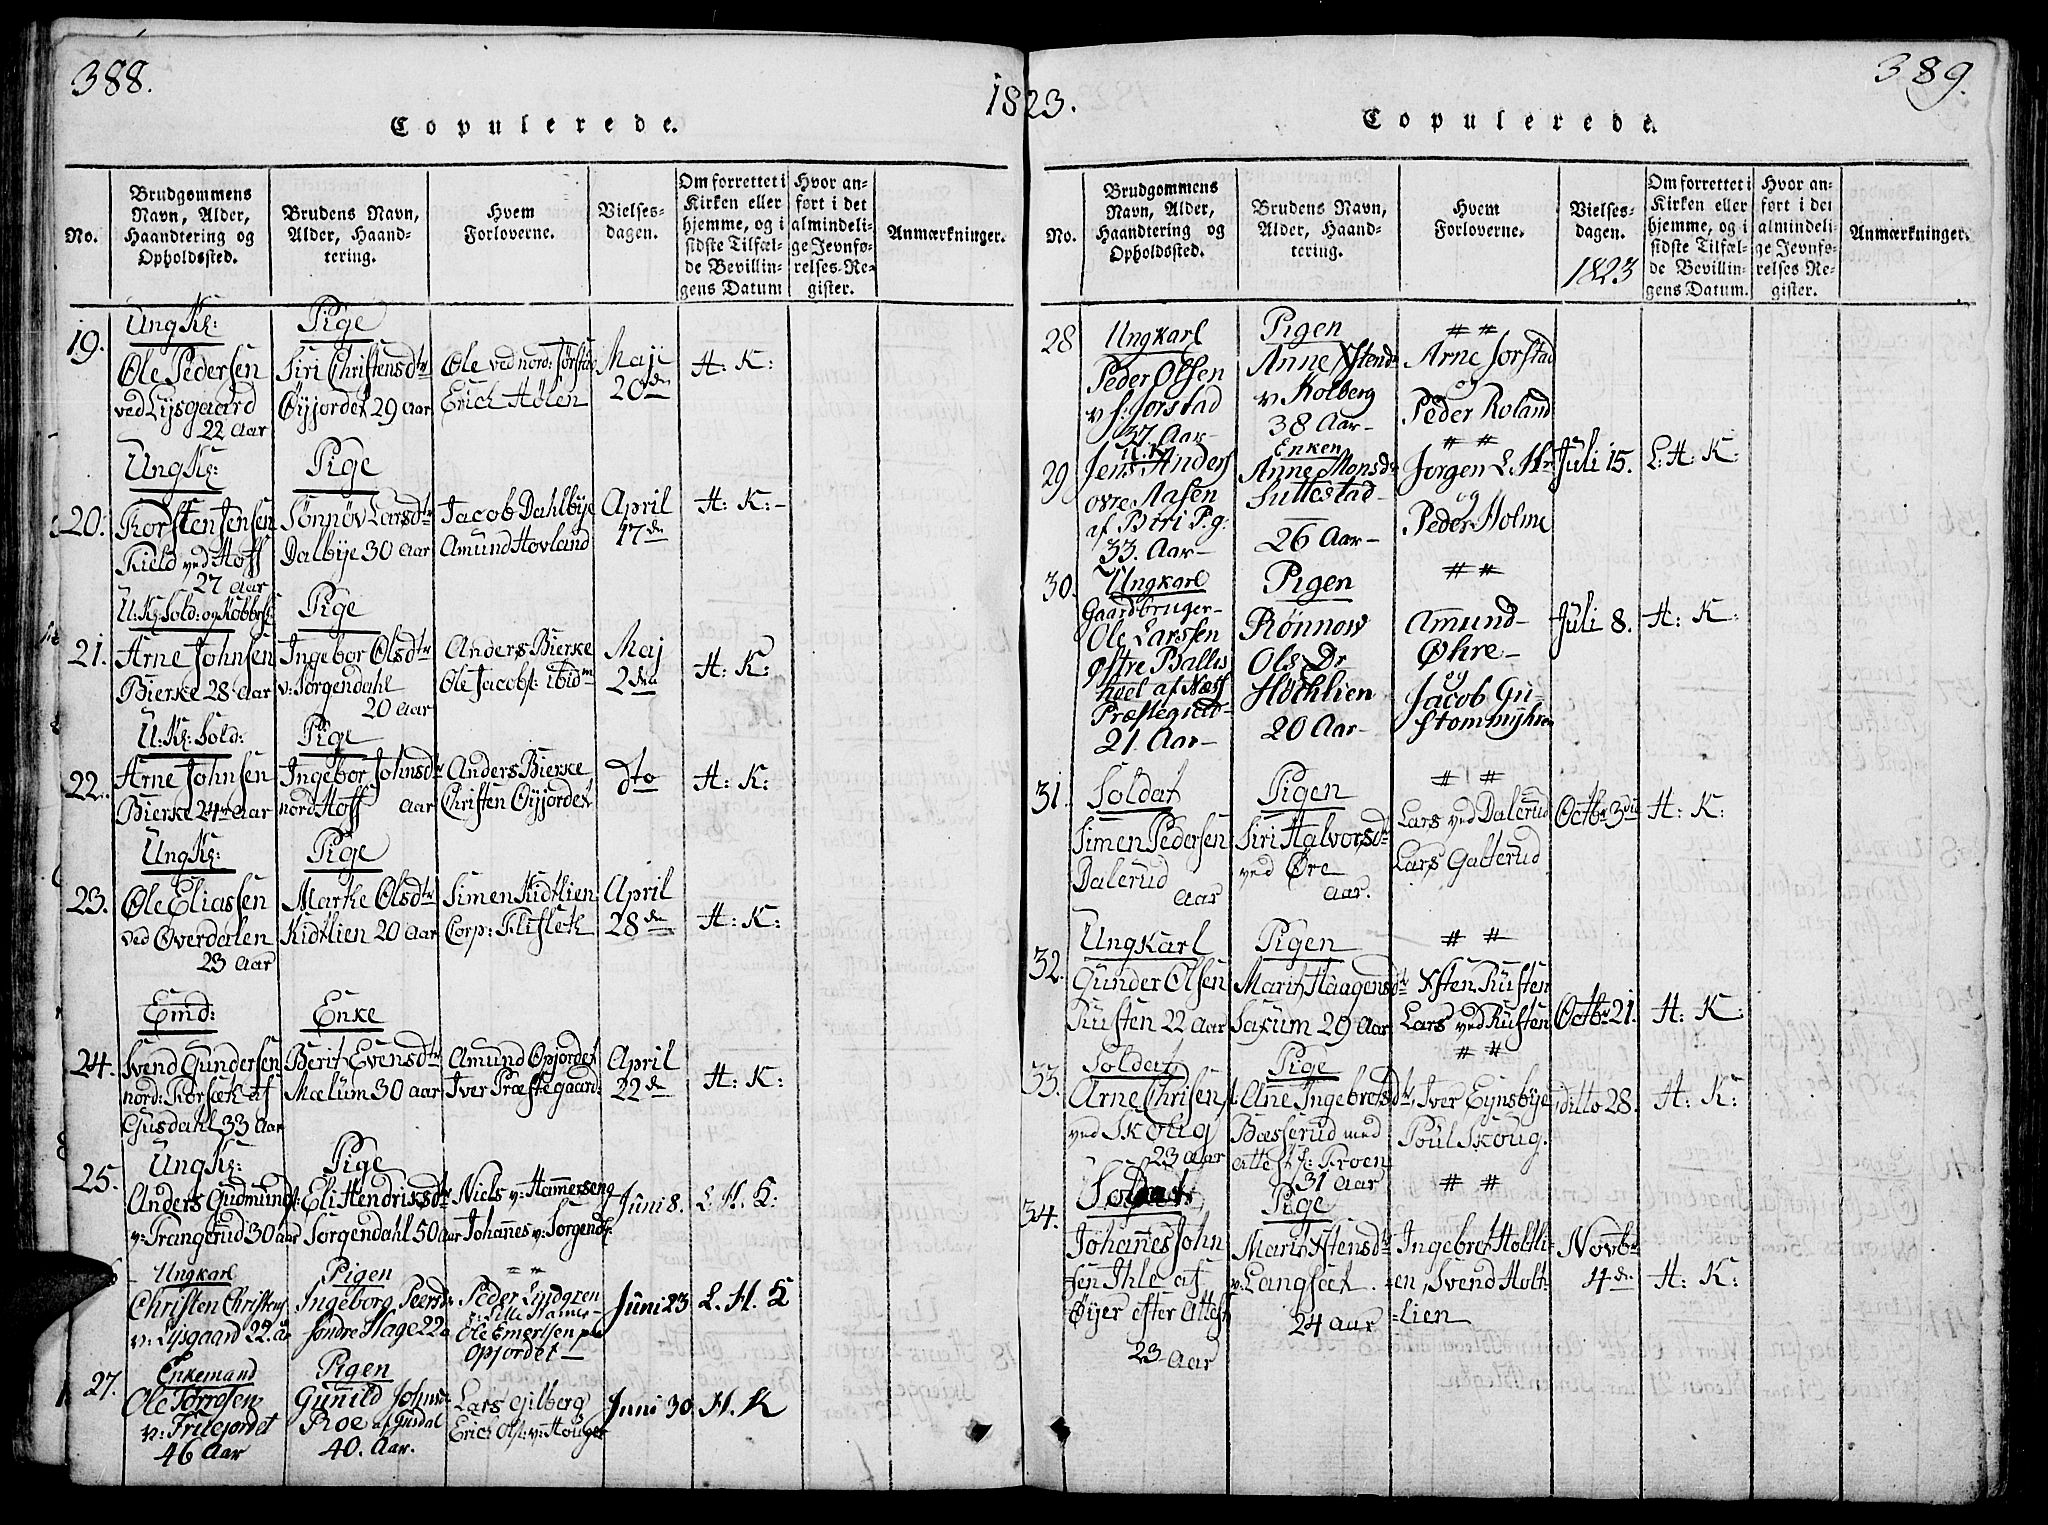 388.
1823.
Copulerede.
No.
Brudgommens Navn, Alder, Haandtering og Opholdssted.
Brudens Navn, Alder, Haandtering.
Hvem Forloverne.
Vielsesdagen.
Om forrettet i Kirken eller hjemme, og i sidste Tilfælde Bevillingens Datum
Hvor anført i det almindelige Jevnførelses-Register.
Anmærkninger.
19.
UngK:
Ole Pedersen
ved Lysgaard
22 aar
Pige
Siri Christensdtr
Øyjordet 29 aar
Ole ved nord: Jørstad
Erich Hølen
Maji
20de
H: K:
20.
UngK:
Torsten Jensen
Kield ved Hoff
27 aar
Pige
Sønnøv Larsdtr
Dalbye 30 aar
Jacob Dahlbye
Amund Hovland
April
17de
H: K:-
21.
U:K: Sold: og Kobbersl:
Arne Johnsen
Bierke 28 aar
Pige
Ingebor Olsdtr
v: Sorgendahl
20 aar
Anders Bierke
Ole Jacobs: ibidm
Maj
2den
H: K:
22.
U:K: Sold:
Arne Johnsen
Bierke 24 aar
Pige
Ingebor Johnsdr
nord Hoff aar
Anders Bierke
Christen Øyjordet
dto
H: K:
23.
UngK:
Ole Eliassen
ved Øverdalen
23 aar
Pige
Marthe Olsdtr
Kidtlien 20 aar
Simen Kidtlien
Corp: Flisleth
April
28de
H: K:
24.
Emd:
Svend Gundersen
nord: Forsæth af
Gusdahl 33 aar
Enke
Berit Evensdtr
Mælum 30 aar
Amund Opjordet
Iver Præstegaard
April
22de
H: K:
25.
UngK:
Anders Gudmunds:
v: Trangerud 30 aar
Pige
Eli Hendriksdtr
Sorgendahl 50 aar
Niels v: Hammerseng
Johannes v: Sorgend:
Juni 8.
L. H. K:
Ungkarl
Christen Christens
v: Lysgaard 22. a
Pigen
Ingeborg Peersd:
søndre Hage 22a
" "
Peder Lindgren
v: Lille Hamer
Ole Emertsen
Opjordet -
Juni 23
L. H. K
27.
Enkemand
Ole Torgsen
v: Frilejordet
46 Aar
Pigen
Gunild Johns:
Roe af Gusdal
40. Aar.
Lars Gilberg
Erich Ols: v: Houger
Juni 30
H. K
389.
Copulerede.
No.
Brudgommens Navn, Alder, Haandtering og Opholdssted.
Brudens Navn, Alder, Haandtering.
Hvem Forloverne.
Vielsesdagen.
1823
Om forrettet i Kirken eller hjemme, og i sidste Tilfælde Bevillingens Datum.
Hvor anført i det almindelige Jevnførelses-Register.
Anmærkninger.
28
Ungkarl
Peder Olsen
v s: Jorstad
37. Aar-
Pigen
Anne Xstend
v Kolberg
38 Aar-
" "
Arne Jorstad
og
Peder Roland
29
U.K
Jens Anders
øvre Aasen
af Biri P.g:
33. Aar-
Enken
Anne Monsd
Suttestad-
26 Aar-
" "
Jorgen L. Hr
og
Peder Holme
Juli 15.
L: H: K:
30.
Ungkarl
Gaardbruger-
Ole Larssen
østre Balles
hoel af Næss
Præstegield-
21. Aar-
Pigen
Rönnow
Ols Dr
Höchlien
20 Aar-
" "
Amund-
Øhre-
og
Jacob Gu-
stommyhren
Juli 8.
H: K:
31.
Soldat
Simen Pedersen
Dalerud
aar
Pigen
Siri Halvorsdr
ved Øre
aar.
" "
Lars ved Dalerud
Lars Gatterud
Octbr 3die
H: K:
32.
UngKarl
Gunder Olsen
Rusten 22 aar
Pigen
Marit Haagensdtr
Saxum 29 Aar
" "
Xsten Rusten
Lars ved Rusten
Octbr 21.
H: K:
33.
Soldat
Arne Chrisens:
ved Skoug
23 aar
Pige
Ane Ingebretsdtr
Bæsserud med
attest f: Froen
31 aar
" "
Iver Eynsbye
Poul Skoug.
ditto 28.
H: K:
34.
Soldat
Johannes John
sen Ihle af
Øyer efter Attest
23 aar
Pige
Marit Xstensdtr
v: Langsæt.
24 aar
" "
Ingebret Holtli-
en, Svend Holt-
=lien
Novbr
4de
H: K: